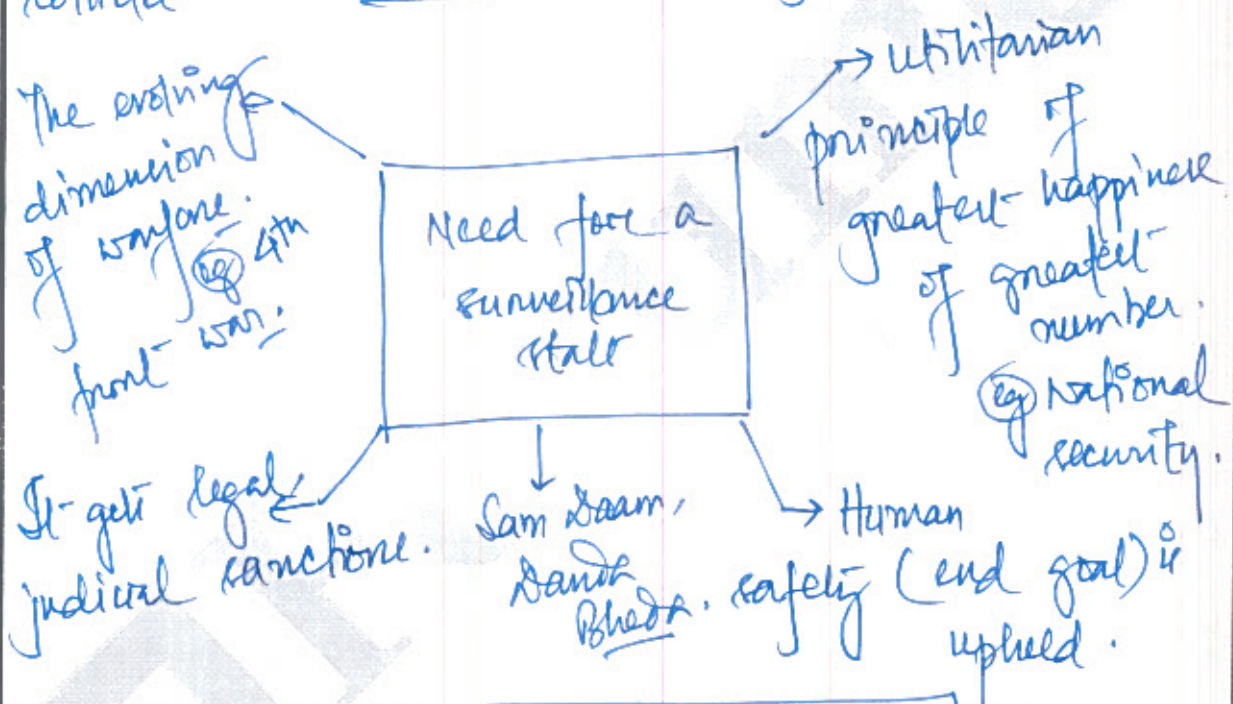 The evolving
dimension
of warfare.
eg 4th
front war.
Need for a
surveillance
state
→ utilitarian
principle of
greatest happiness
of greatest
number.
eg national
security.
It gets legal/
judicial sanctions.
Sam Daam,
Danda
Bheda.
→ Human
safety (end goal) is
upheld.